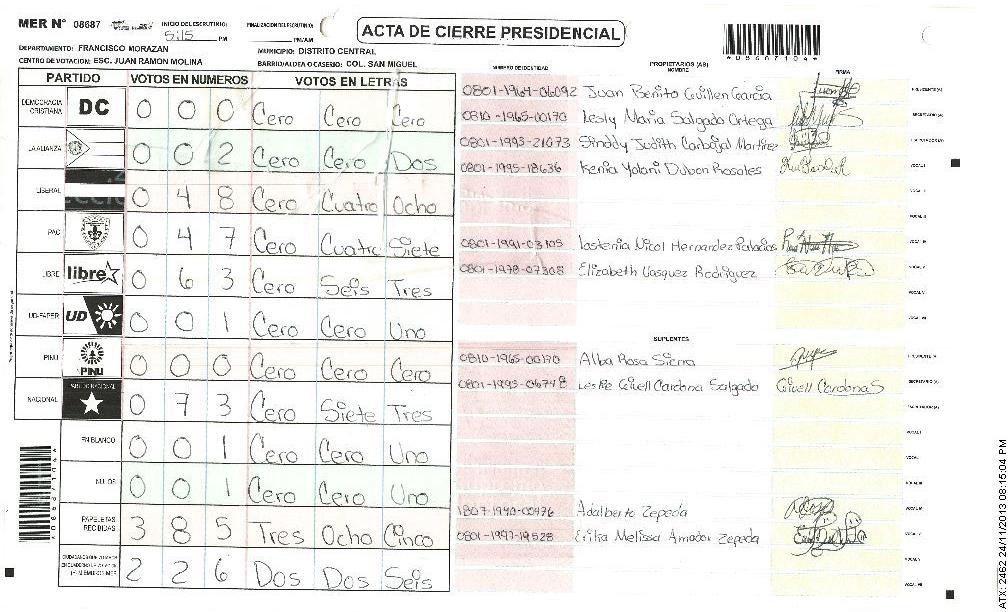 MER N° 08687
INICIO DEL ESCRUTINIO:
5:15 PM
FINALIZACION DEL ESCRUTINIO:
PM/AM
ACTA DE CIERRE PRESIDENCIAL
*08687104*
DEPARTAMENTO: FRANCISCO MORAZAN
MUNICIPIO: DISTRITO CENTRAL
CENTRO DE VOTACION: ESC. JUAN RAMON MOLINA
BARRIO/ALDEA O CASERIO: COL. SAN MIGUEL
PARTIDO VOTOS EN NUMEROS VOTOS EN LETRAS
DEMOCRACIA CRISTIANA DC 0 0 0 Cero Cero Cero
LA ALIANZA 0 0 2 Cero Cero Dos
LIBERAL 0 4 8 Cero Cuatro Ocho
PAC 0 4 7 Cero Cuatro Siete
LIBRE libre 0 6 3 Cero Seis Tres
UD-FAPER UD 0 0 1 Cero Cero Uno
PINU PINU 0 0 0 Cero Cero Cero
NACIONAL PARTIDO NACIONAL 0 7 3 Cero Siete Tres
EN BLANCO 0 0 1 Cero Cero Uno
NULOS 0 0 1 Cero Cero Uno
PAPELETAS RECIBIDAS 3 8 5 Tres Ocho Cinco
2 2 6 Dos Dos Seis
NUMERO DE IDENTIDAD PROPIETARIOS (AS) NOMBRE FIRMA
0801-1964-06092 Juan Benito Guillen Garcia PRESIDENTE (A)
0810-1965-00170 Lesly Maria Salgado Ortega SECRETARIO (A)
0801-1993-21073 Sinddy Judith Carbajal Martinez ESCRUTADOR (A)
0801-1995-18636 Kenia Yolani Dubon Rosales VOCAL I
VOCAL II
VOCAL III
0801-1991-03105 Lastenia Nicol Hernandez Palacios VOCAL IV
0801-1978-07308 Elizabeth Vasquez Rodriguez VOCAL V
VOCAL VI
VOCAL VII
SUPLENTES
0810-1965-00170 Alba Rosa Sierra PRESIDENTE (A)
0801-1993-06748 Leslie Givell Cardona Salgado Givell Cardona S SECRETARIO (A)
ESCRUTADOR (A)
VOCAL I
VOCAL II
VOCAL III
1807-1940-00476 Adalberto Zepeda VOCAL IV
0801-1997-19528 Erika Melissa Amador Zepeda VOCAL V
VOCAL VI
VOCAL VII
ATX: 2462 24/11/2013 08:15:04 PM